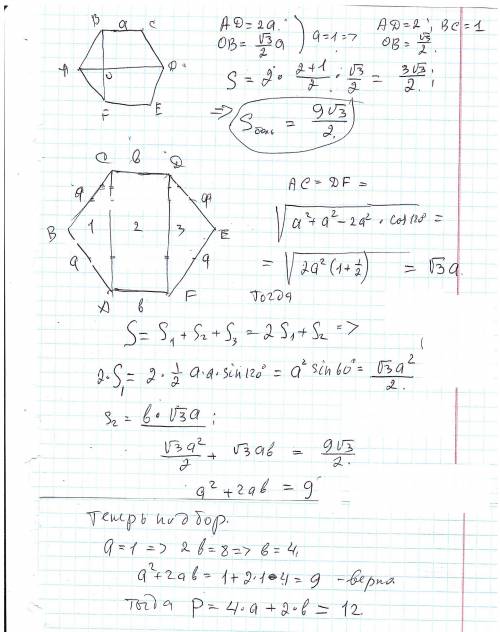 B a C
AD=2a;
OB=√3/2 a
a=1=>
AD=2; BC=1
OB=√3/2.
A O D
F E
S=2·(2+1)/2·√3/2=3√3/2;
=> Sбол = 9√3/2.
C b D
a a
B 1 2 3 E
a a
A b F
AC=DF=
√(a²+a²-2a²·cos120°)=
=√(2a²(1+1/2))=√3a.
Тогда
S=S₁+S₂+S₃=2S₁+S₂=>
2·S₁=2·1/2 a·a·sin120°=a²sin60°=√3a²/2.
S₂=b·√3a;
√3a²/2+√3ab=9√3/2.
a²+2ab=9
Теперь подбор.
a=1=>2b=8=>b=4.
a²+2ab=1+2·1·4=9 -верно
тогда P=4·a+2·b=12.